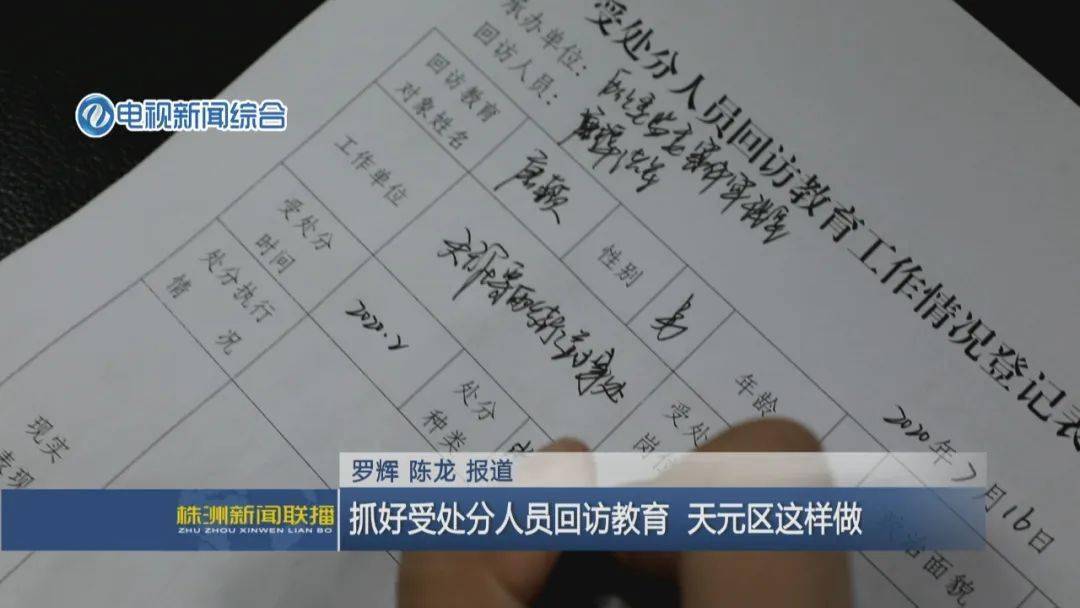 电视新闻综合
受处分人员回访教育工作情况登记表
承办单位：
回访人员：
2020年7月16日
回访教育
对象姓名
性别
男
年龄
工作单位
受处
岗位
治面貌
受处分
时间
2020.2
处分
种类
处分执行
情 况
现实
表现
罗辉 陈龙 报道
株洲新闻联播
ZHU ZHOU XINWEN LIAN BO
抓好受处分人员回访教育 天元区这样做